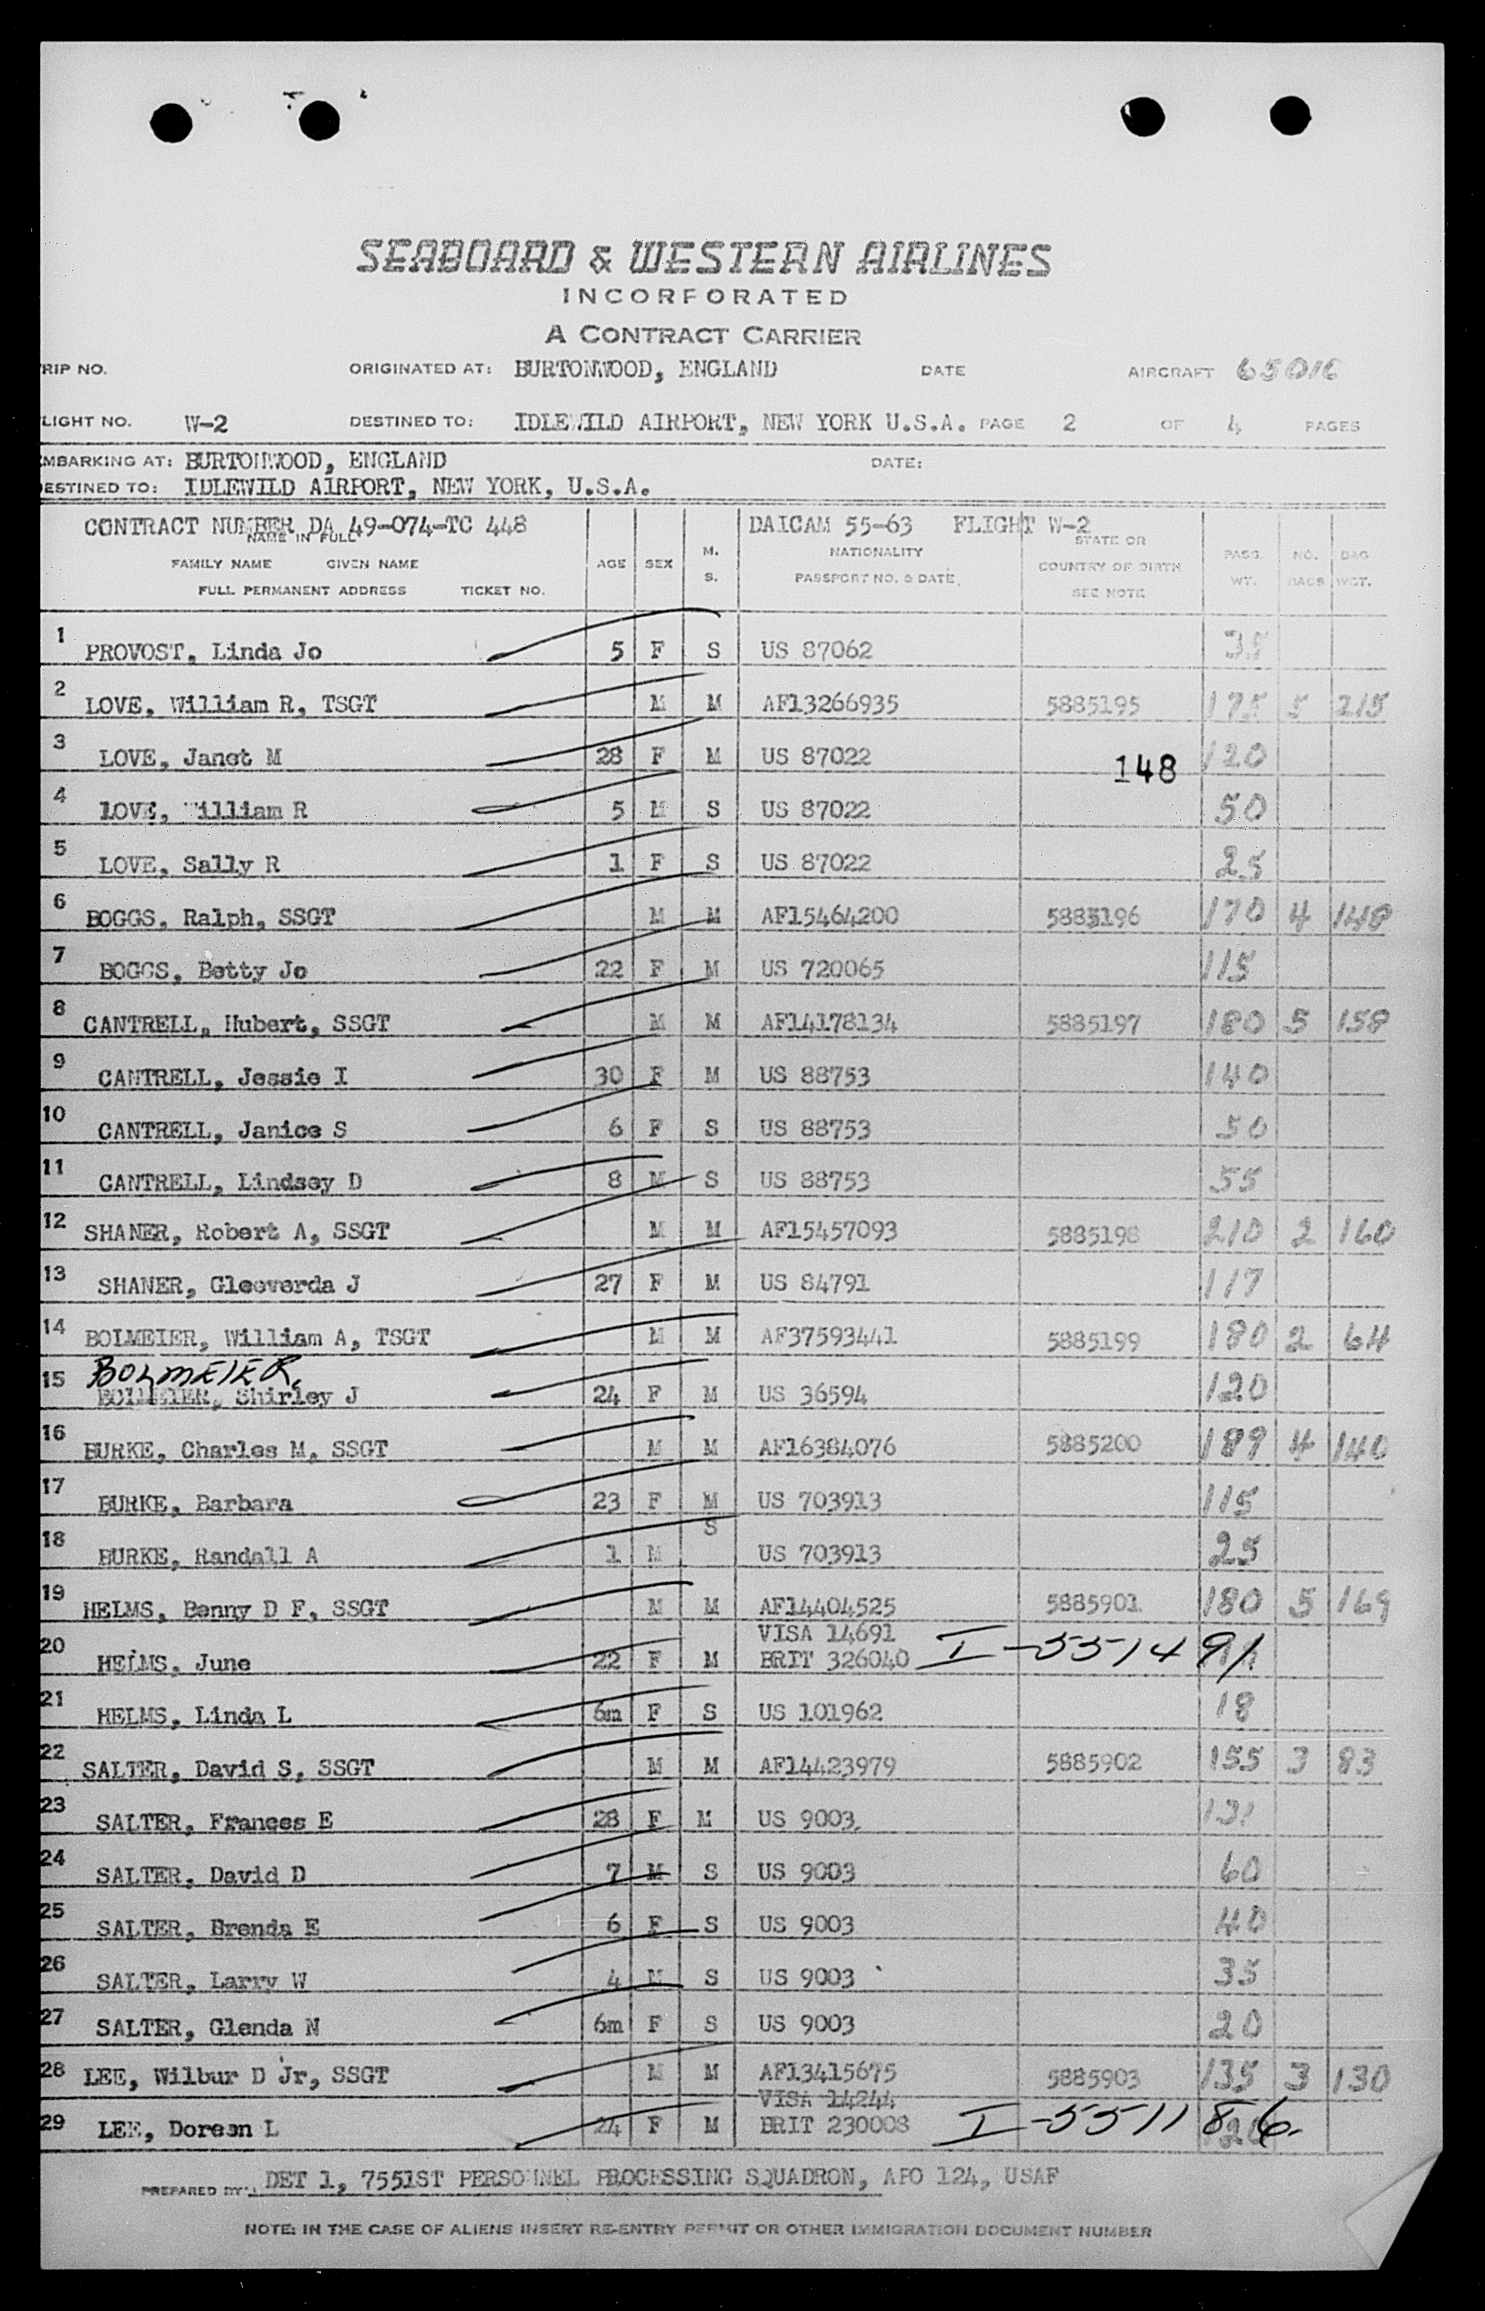 SEABOARD & WESTERN AIRLINES
INCORPORATED
A CONTRACT CARRIER
RIP NO. ORIGINATED AT: BURTONWOOD, ENGLAND DATE AIRCRAFT 65016
LIGHT NO. W-2 DESTINED TO: IDLEWILD AIRPORT, NEW YORK U.S.A. PAGE 2 OF 4 PAGES
MBARKING AT: BURTONWOOD, ENGLAND DATE:
ESTINED TO: IDLEWILD AIRPORT, NEW YORK, U.S.A.
CONTRACT NUMBER DA 49-074-TC 448 DAICAM 55-63 FLIGHT W-2
NAME IN FULL
FAMILY NAME GIVEN NAME AGE SEX M. S. NATIONALITY STATE OR COUNTRY OF BIRTH PASS. WT. NO. BAGS BAG WGT.
FULL PERMANENT ADDRESS TICKET NO. PASSPORT NO. & DATE, SEE NOTE
1 PROVOST, Linda Jo 5 F S US 87062 35
2 LOVE, William R, TSGT M M AF13266935 5885195 175 5 215
3 LOVE, Janet M 28 F M US 87022 148 120
4 LOVE, William R 5 M S US 87022 50
5 LOVE, Sally R 1 F S US 87022 25
6 BOGGS, Ralph, SSGT M M AF15464200 5885196 170 4 148
7 BOGGS, Betty Jo 22 F M US 720065 115
8 CANTRELL, Hubert, SSGT M M AF14178134 5885197 180 5 158
9 CANTRELL, Jessie I 30 F M US 88753 140
10 CANTRELL, Janice S 6 F S US 88753 50
11 CANTRELL, Lindsey D 8 M S US 88753 55
12 SHANER, Robert A, SSGT M M AF15457093 5885198 210 2 160
13 SHANER, Gleeverda J 27 F M US 84791 117
14 BOLMEIER, William A, TSGT M M AF37593441 5885199 180 2 64
BOLMEIER,
15 BOLMEIER, Shirley J 24 F M US 36594 120
16 BURKE, Charles M, SSGT M M AF16384076 5885200 189 4 140
17 BURKE, Barbara 23 F M US 703913 115
18 BURKE, Randall A 1 M S US 703913 25
19 HELMS, Benny D F, SSGT M M AF14404525 5885901 180 5 169
VISA 14691
20 HELMS, June 22 F M BRIT 326040 I-551491
21 HELMS, Linda L 6m F S US 101962 18
22 SALTER, David S, SSGT M M AF14423979 5885902 155 3 83
23 SALTER, Frances E 28 F M US 9003, 131
24 SALTER, David D 7 M S US 9003 60
25 SALTER, Brenda E 6 F S US 9003 40
26 SALTER, Larry W 4 M S US 9003 35
27 SALTER, Glenda N 6m F S US 9003 20
28 LEE, Wilbur D Jr, SSGT M M AF13415675 5885903 135 3 130
VISA 14244
29 LEE, Doreen L 24 F M BRIT 230008 I-551186.
PREPARED BY: DET 1, 7551ST PERSONNEL PROCESSING SQUADRON, APO 124, USAF
NOTE: IN THE CASE OF ALIENS INSERT RE-ENTRY PERMIT OR OTHER IMMIGRATION DOCUMENT NUMBER